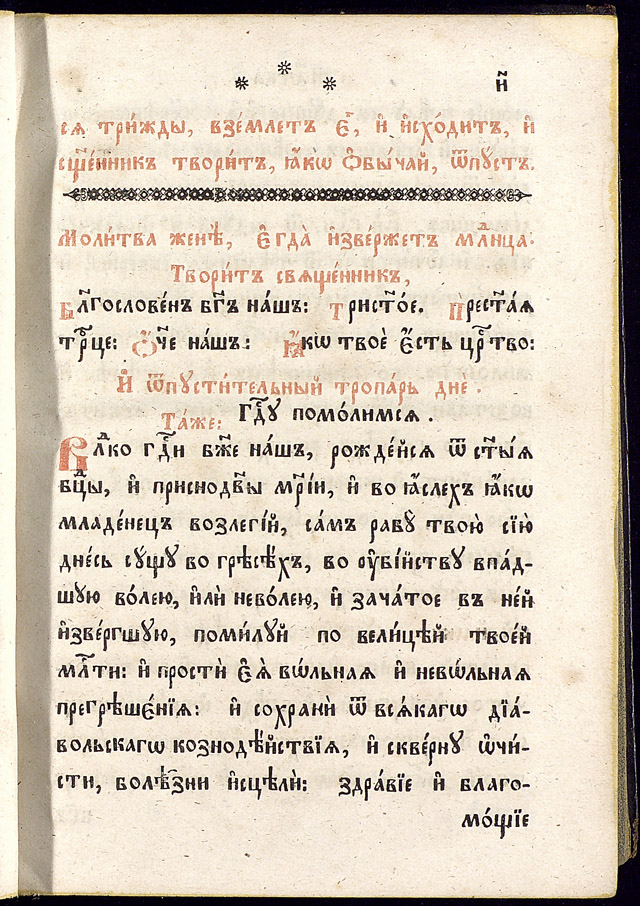 * * * и҃
сѧ три́жды, взе́млетъ є҆̀, и҆ и҆схо́дитъ, и҆
сщ҃е́нникъ твори́тъ, ꙗ҆́кѡ ѻ҆бы́чай, ѿпꙋ́стъ.
Моли́тва женѣ̀, є҆гда̀ и҆зве́ржетъ млⷣнца.
Твори́тъ свѧще́нникъ,
Блⷢ҇ослове́нъ бг҃ъ на́шъ: Трист҃о́е. Прест҃а́ѧ
трⷪ҇це: Ѻ҆́ч҃е на́шъ: Ꙗ҆́кѡ твоѐ є҆́сть црⷭ҇тво:
И҆ ѿпꙋсти́тельный тропа́рь днѐ.
Та́же: Гдⷭ҇ꙋ помо́лимсѧ.
Влⷣко гдⷭ҇и бж҃е на́шъ, рожде́йсѧ ѿ ст҃ы́ѧ
бцⷣы, и҆ приснодв҃ы мр҃і́и, и҆ во ꙗ҆́слехъ ꙗ҆́кѡ
младе́нецъ возлегі́й, са́мъ рабꙋ̀ твою̀ сїю̀
дне́сь сꙋ́щꙋ во грѣсѣ́хъ, во ᲂу҆бі́йствꙋ впа́д-
шꙋю во́лею, и҆лѝ нево́лею, и҆ зача́тое въ не́й
и҆зве́ргшꙋю, поми́лꙋй по вели́цѣй твое́й
млⷭ҇ти: и҆ простѝ є҆ѧ̀ вѡ́льнаѧ и҆ невѡ́льнаѧ
прегрѣшє́нїѧ: и҆ сохранѝ ѿ всѧ́кагѡ дїа́-
вольскагѡ кознодѣ́йствїѧ, и҆ скве́рнꙋ ѡ҆чи́-
сти, болѣ́зни и҆сцѣлѝ: здра́вїе и҆ благо-
мо́щїе